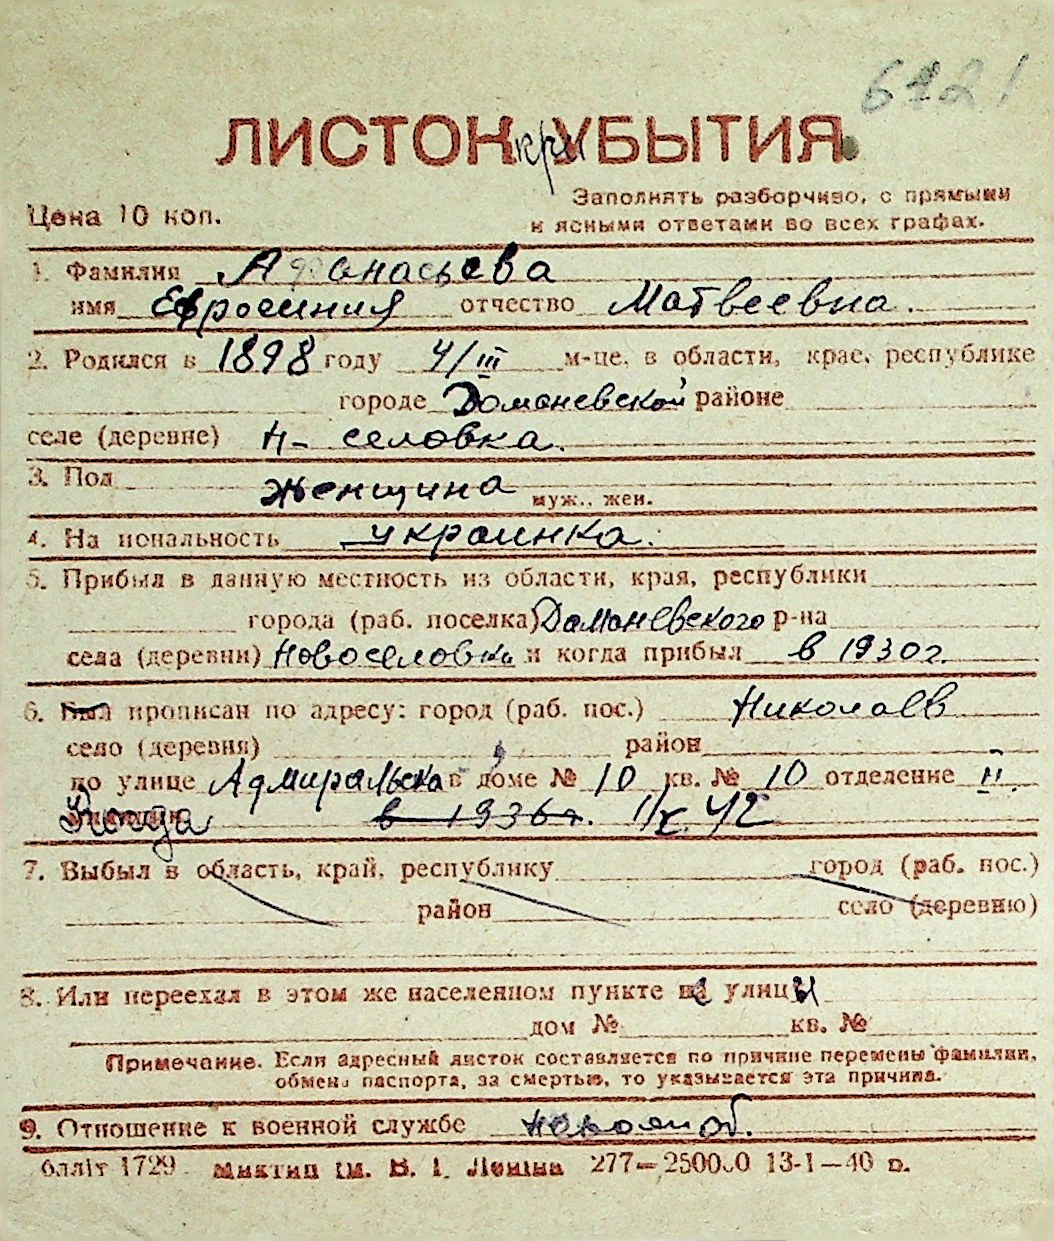 6121
ЛИСТОК при УБЫТИЯ
Заполнять разборчиво, с прямыми
Цена 10 коп.
и ясными ответами во всех графах.
1. Фамилия Афанасьева
имя Ефросиния отчество Матвеевна.
2. Родился в 1898 году 4/III м-це, в области, крае, республике
городе Доманевской районе
селе (деревне) Н-селовка.
3. Пол женщина муж., жен.
4. На иональность украинка.
5. Прибыл в данную местность из области, края, республики
города (раб. поселка) Доманевского р-на
села (деревни) Новоселовки и когда прибыл в 1930г.
6. Был прописан по адресу: город (раб. пос.) Николаев
село (деревня) район
по улице Адмиральска в доме № 10 кв. № 10 отделение II.
Когда в 1936г. 1/X 42
7. Выбыл в область, край, республику город (раб. пос.)
район село (деревню)
8. Или переехал в этом же населенном пункте не улицы
дом № кв. №
Примечание. Если адресный листок составляется по причине перемены фамилии,
обмена паспорта, за смертью, то указывается эта причина.
9. Отношение к военной службе невоенноб.
блліт 1729 Миктип ім. В. І. Леніна 277—250000 13-1—40 р.